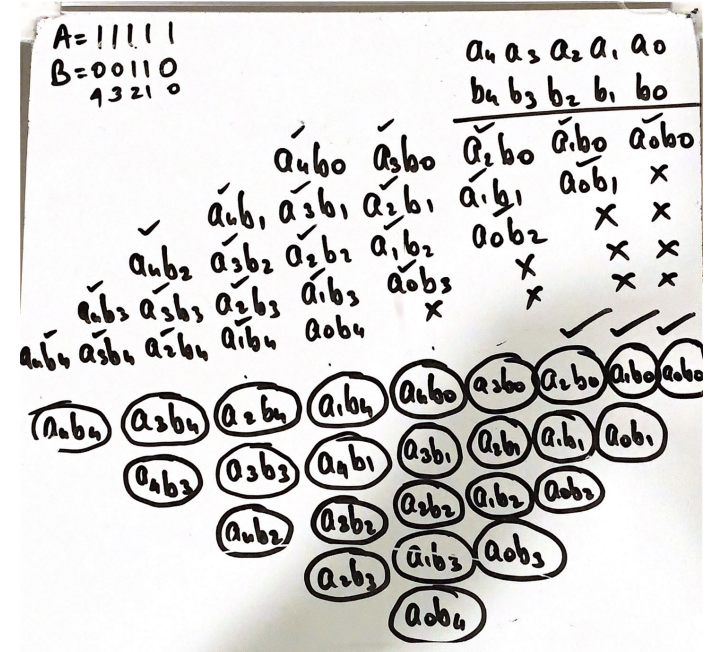 A=11111
B=00110
43210
a4 a3 a2 a1 a0
b4 b3 b2 b1 b0
a4b0 a3b0 a2b0 a1b0 a0b0
a4b1 a3b1 a2b1 a1b1 a0b1 ×
a4b2 a3b2 a2b2 a1b2 a0b2 × ×
a4b3 a3b3 a2b3 a1b3 a0b3 × × ×
a4b4 a3b4 a2b4 a1b4 a0b4 × × × ×
a4b4 a3b4 a2b4 a1b4 a4b0 a3b0 a2b0 a1b0 a0b0
a4b3 a3b3 a4b1 a3b1 a2b1 a1b1 a0b1
a4b2 a3b2 a2b2 a1b2 a0b2
a2b3 a1b3 a0b3
a0b4